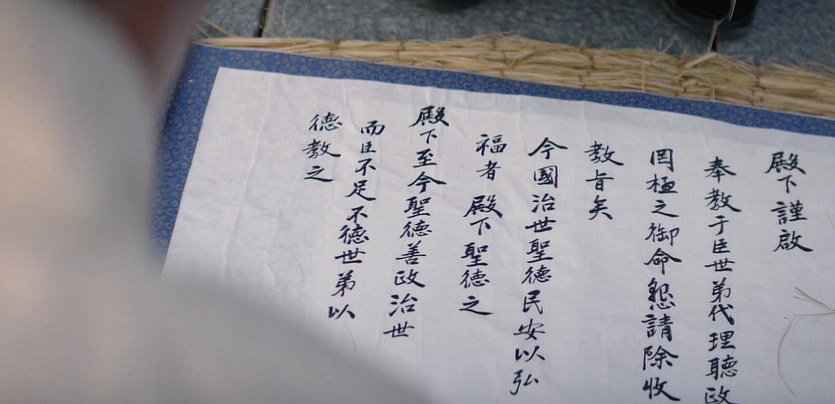 殿下謹啟
奉教于臣世弟代理聽政
罔極之御命懇請除收
教旨矣
今國治世聖德民安以弘
福者殿下聖德之
殿下至今聖德善政治世
而臣不足不德世弟以
德教之